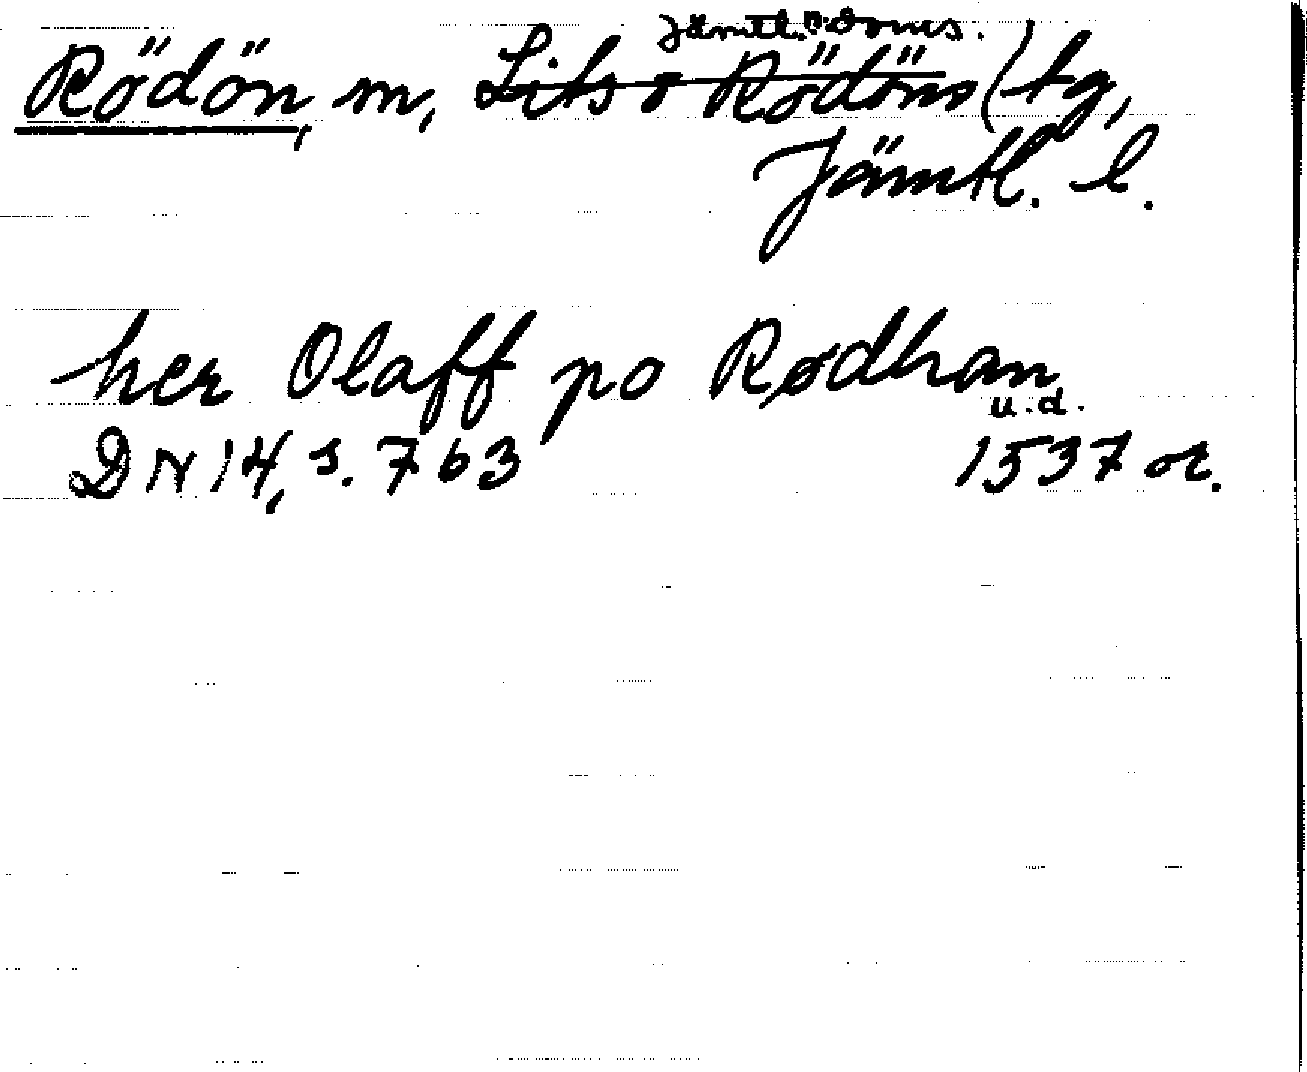 Jämtl. v. doms.
Rödön, m, Lits o Rödöns (tg,
Jämtl. l.
her Olaff po Rødhan
u.d.
DN 14, s. 763 1537 or.